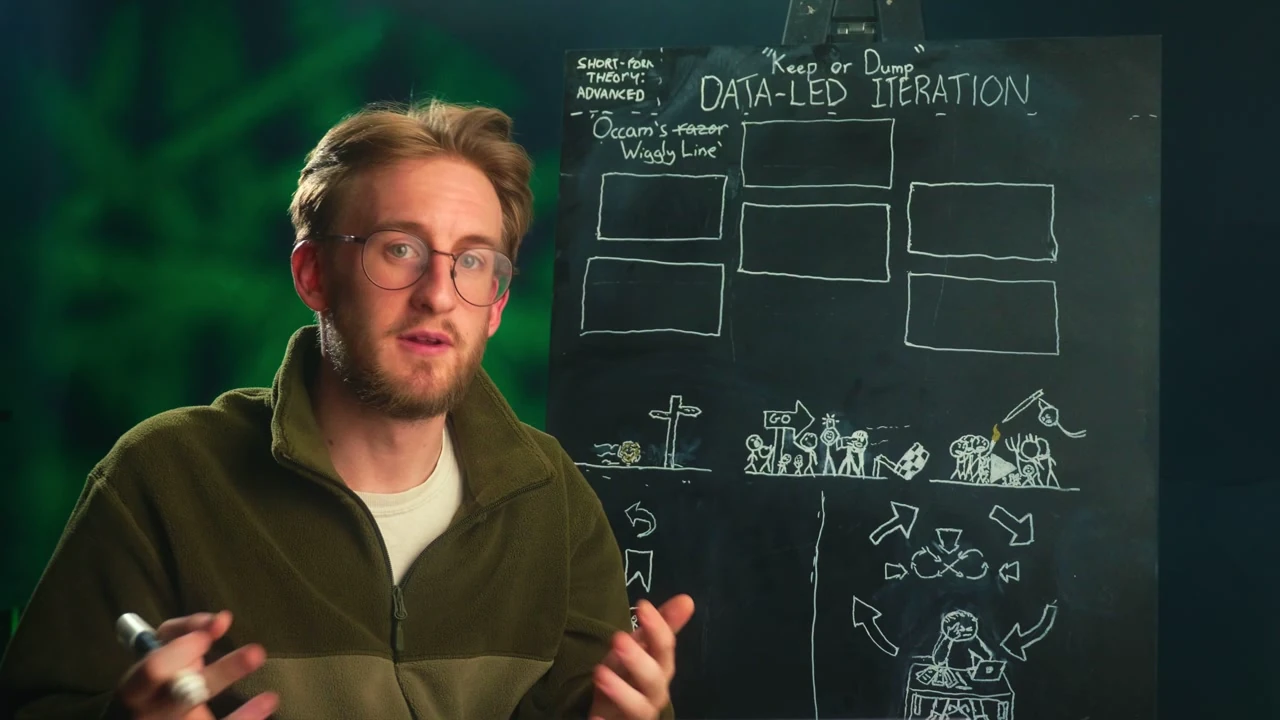 SHORT-FORM
THEORY:
ADVANCED
"Keep or Dump"
DATA-LED ITERATION
Occam's razor
Wiggly Line'
GO